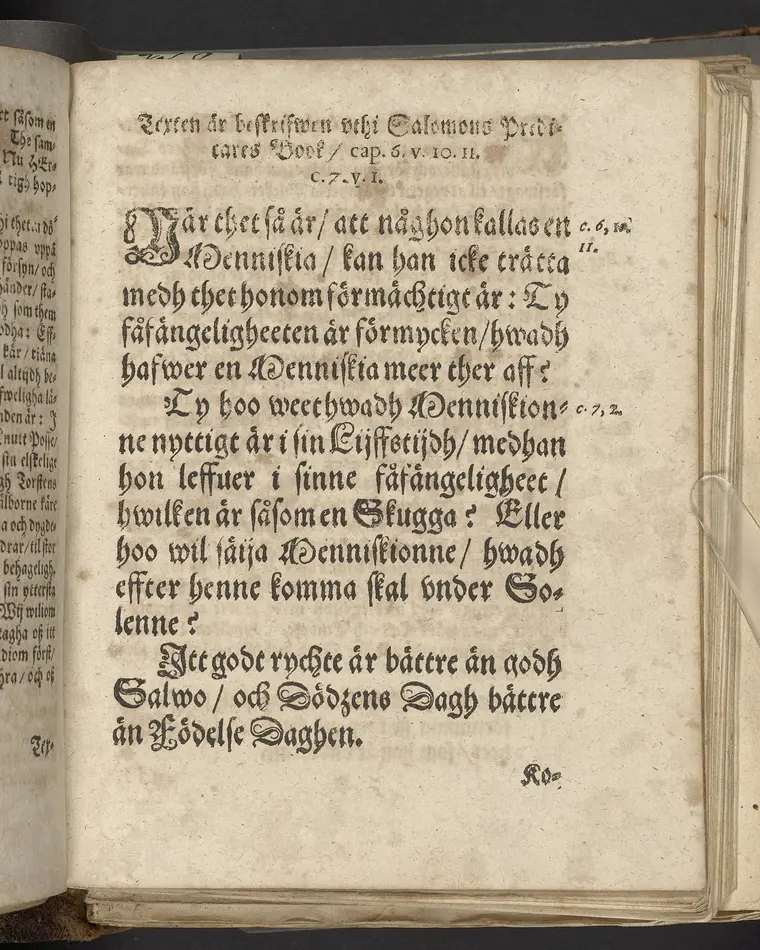 ct såsom en
The sam-
Nu HEr-
righ hop-
oppas vppå
försyn/ och
händer/ sta-
som them
odha: Eff-
kär/ tiäna
altijdh be-
fweligha lä-
nden är: J
nutt Posse/
sin elskelige
gh Torstens
älborne käre
a och dygde-
drar/ til stor
behageligh.
sin ytterste
Wij wiliom
tagha oß itt
diom först/
hra/ och oß
Tex-
Texten är beskrifwen vthi Salomons Predi-
cares Book/ cap. 6. v. 10. 11.
c. 7. v. 1.
När thet så är/ att någhon kallas en c. 6, 10.
Menniskia/ kan han icke trätta 11.
medh thet honom förmächtigt är: Ty
fåfängeligheeten är förmycken/ hwadh
hafwer en Menniskia meer ther aff?
Ty hoo weet hwadh Menniskion- c. 7, 2.
ne nyttigt är i sin Lijffstijdh/ medhan
hon leffuer i sinne fåfängeligheet/
hwilken är såsom en Skugga? Eller
hoo wil säija Menniskionne/ hwadh
effter henne komma skal vnder So-
lenne?
Itt godt rychte är bättre än godh
Salwo/ och Dödzens Dagh bättre
än Födelse Daghen.
Ko-